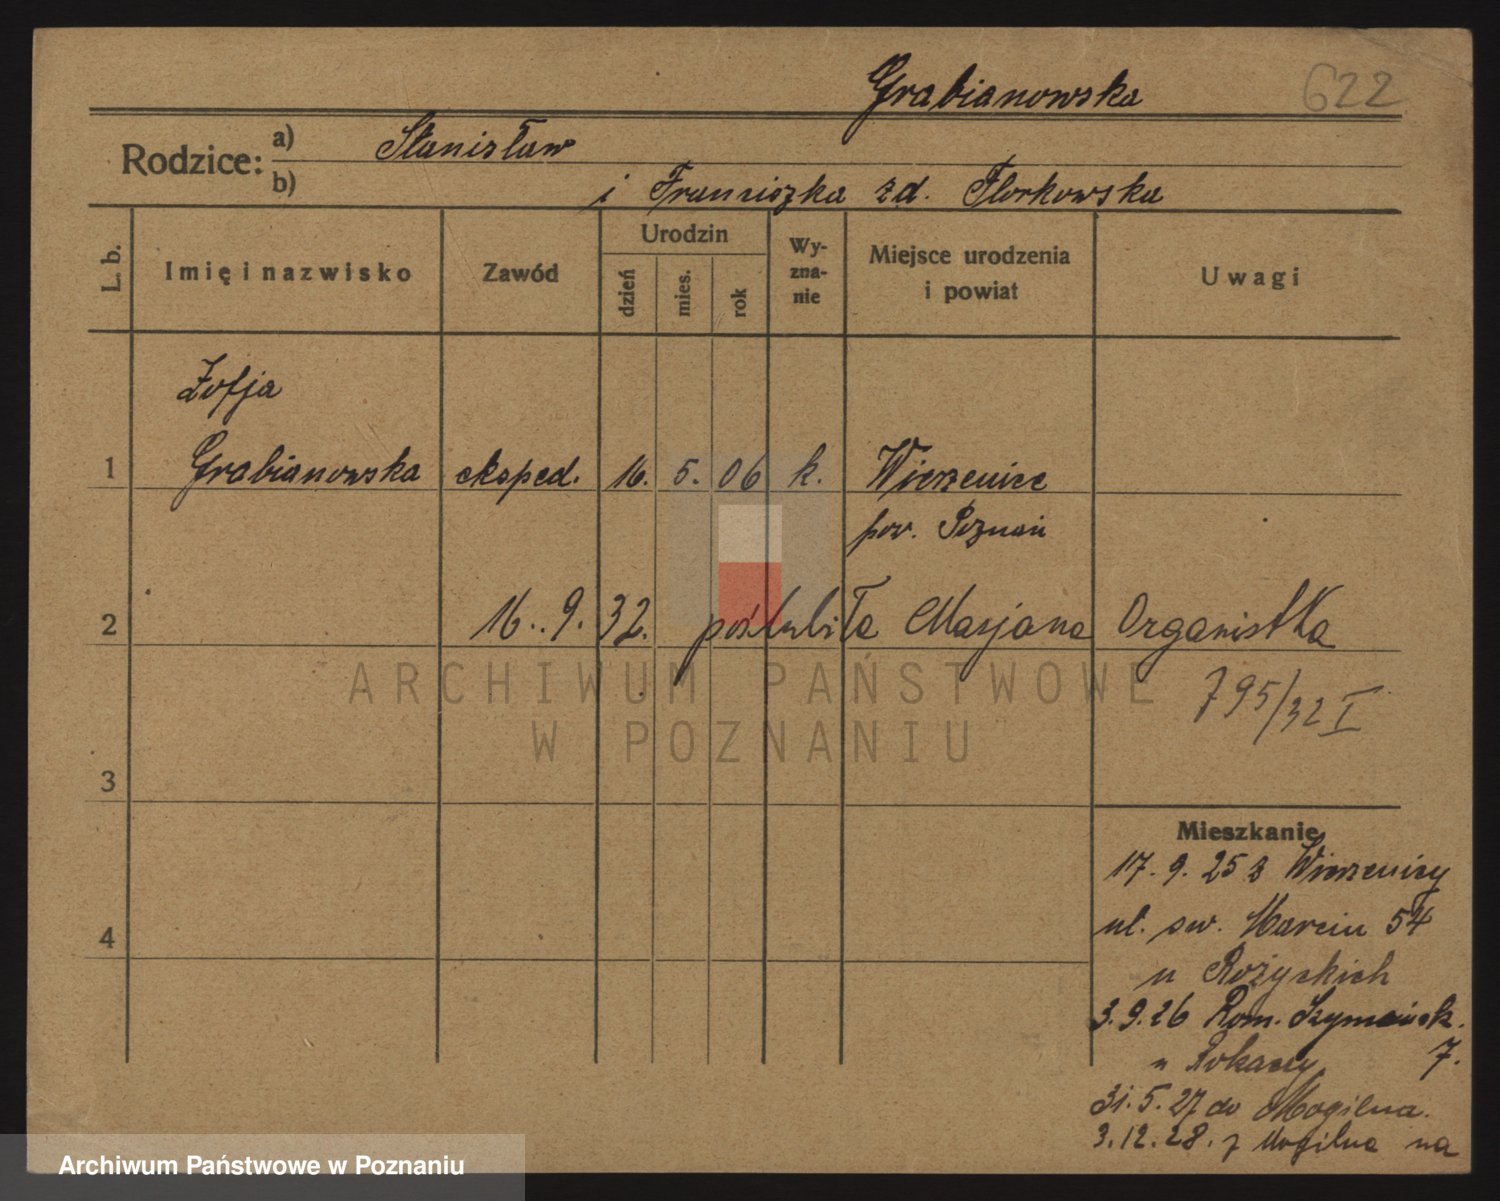 Grabianowska 622
Rodzice: a) Stanisław
b) i Franciszka zd. Florkowska
L. b.
Imię i nazwisko
Zawód
Urodzin
dzień
mies.
rok
Wy-
zna-
nie
Miejsce urodzenia
i powiat
Uwagi
Zofja
1 Grabianowska eksped. 16. 5. 06 k. Wierzenice
pow. Poznań
2 16. 9. 32. poślubiła Marjana Organistka
795/32 I
ARCHIWUM PAŃSTWOWE
W POZNANIU
3
4
Mieszkanie
17. 9. 25 z Wierzenicy
ul. św. Marcin 54
u Różyckich
3. 9. 26 Rom. Szymańsk.
u 7.
31. 5. 27 do Mogilna.
3. 12. 28. z Mogilna na
Archiwum Państwowe w Poznaniu